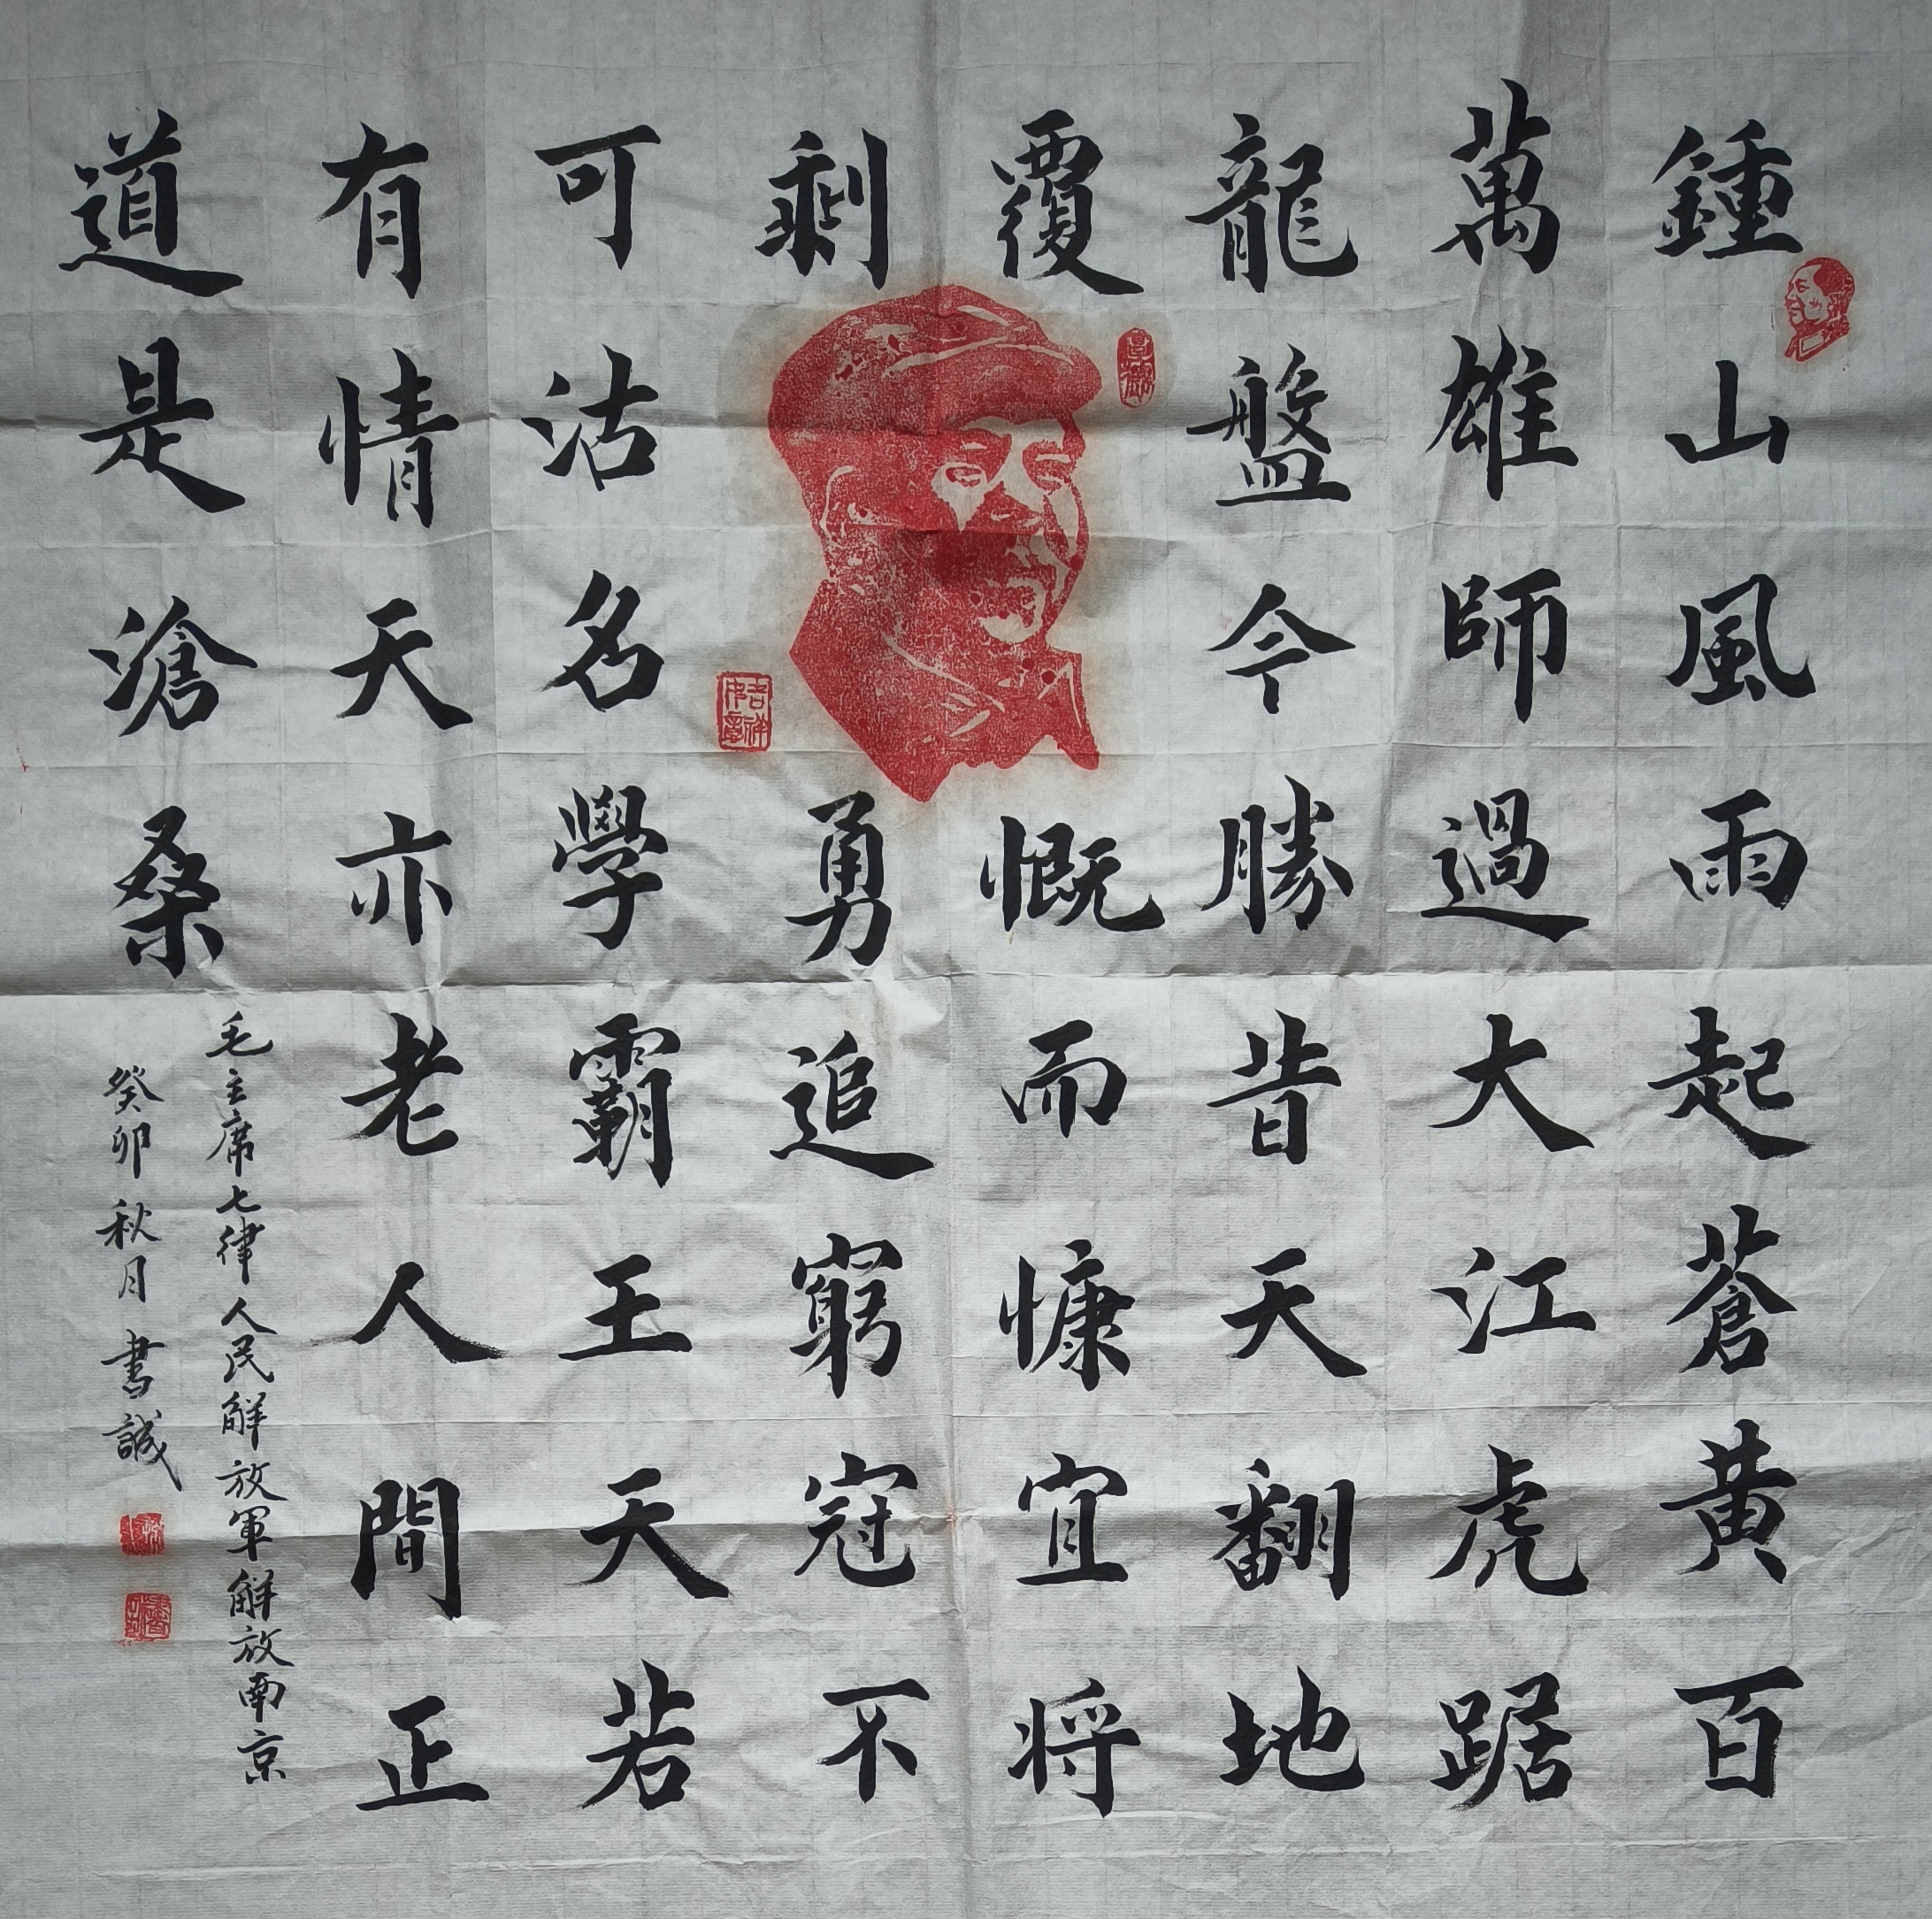 鍾山風雨起蒼黃百
萬雄師過大江虎踞
龍盤今勝昔天翻地
覆慨而慷宜将
剩勇追窮冠不
可沽名學霸王天若
有情天亦老人間正
道是滄桑
毛主席七律人民解放軍解放南京
癸卯秋月書誠